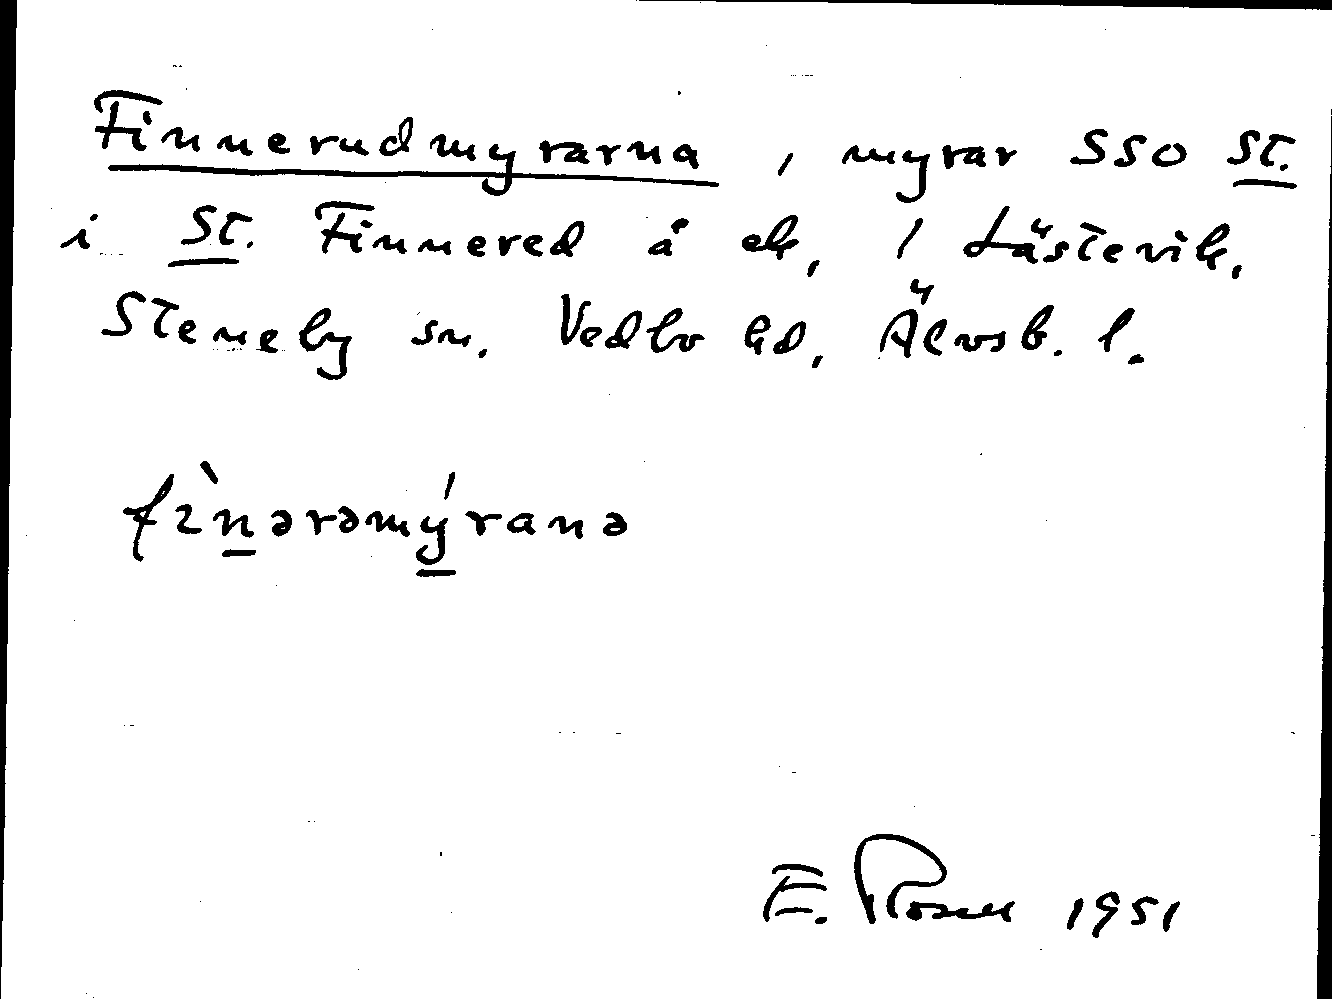 Finnerudmyrarna, myrar SSO St.
i St. Finnered å ek, / Lästevik,
Steneby sn. Vedbo hd, Älvsb. l.
fìnərəmýranə
E. Rosell 1951